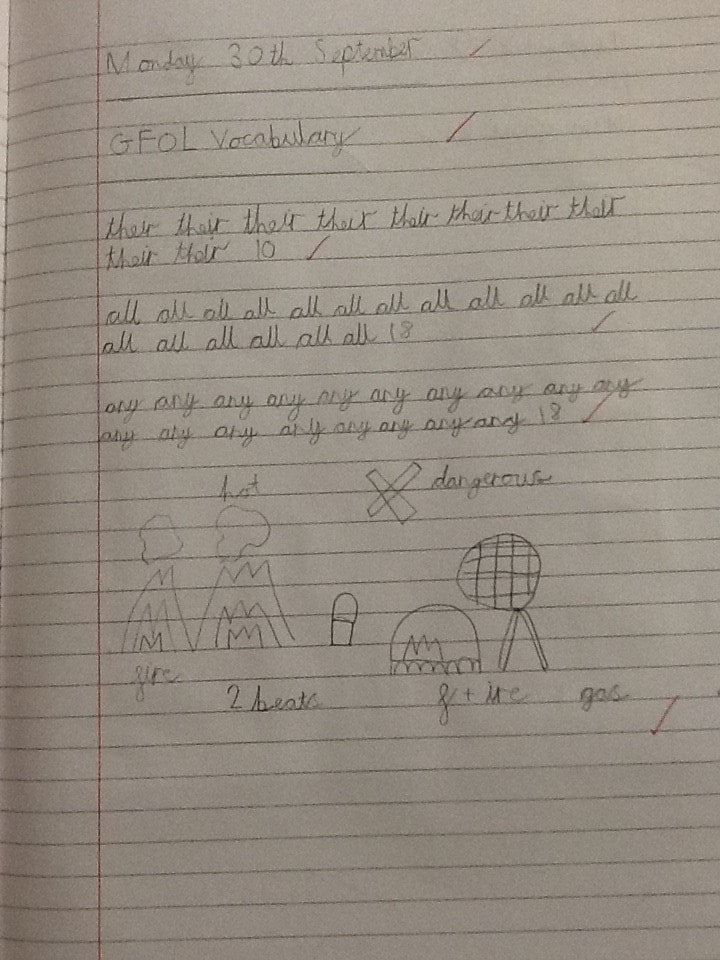 Monday 30th September
GFOL Vocabulary
their their their their their their their their
their their 10
all all all all all all all all all all all all
all all all all all all 18
any any any any any any any any any any
any any any any any any any any 18
hot dangerous
fire
2 beats f + ire gas